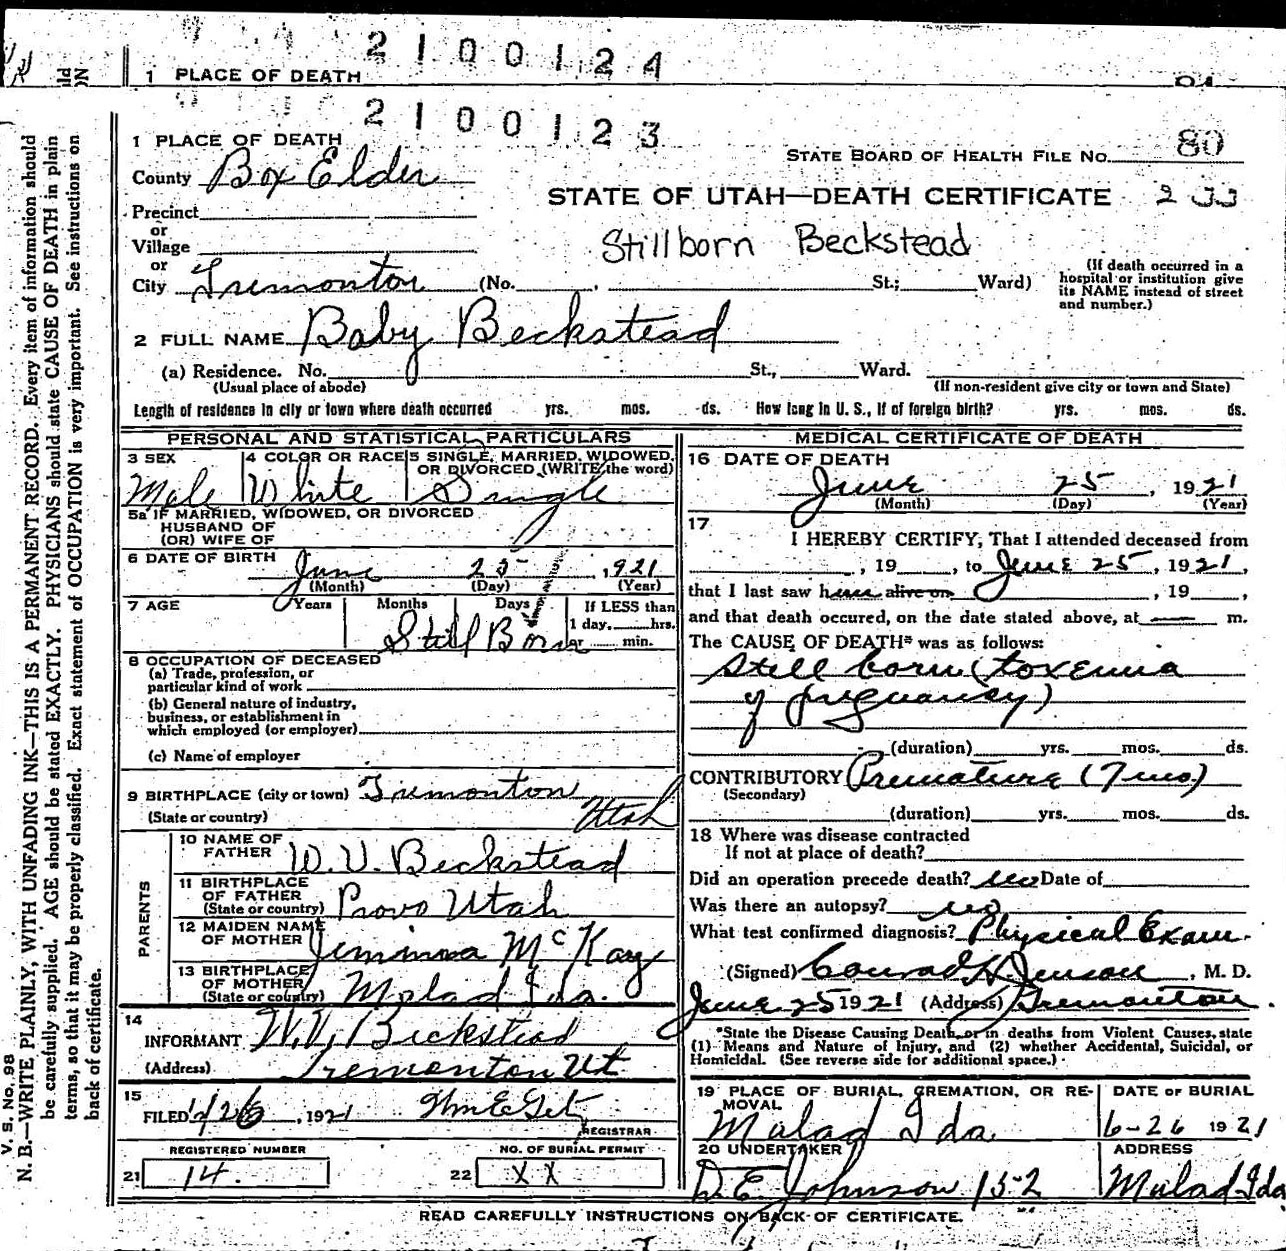 2100124
1 PLACE OF DEATH
2100123
1 PLACE OF DEATH
STATE BOARD OF HEALTH FILE No. 80
County Box Elder
STATE OF UTAH—DEATH CERTIFICATE 233
Precinct
or
Village
Stillborn Beckstead
or
City Tremonton (No. , St.; Ward)
(If death occurred in a hospital or institution give its NAME instead of street and number.)
2 FULL NAME Baby Beckstead
(a) Residence. No. St., Ward.
(Usual place of abode) (If non-resident give city or town and State)
Length of residence in city or town where death occurred yrs. mos. ds. How long in U. S., if of foreign birth? yrs. mos. ds.
PERSONAL AND STATISTICAL PARTICULARS
3 SEX 4 COLOR OR RACE 5 SINGLE, MARRIED, WIDOWED, OR DIVORCED (WRITE the word)
Male White Single
5a IF MARRIED, WIDOWED, OR DIVORCED
HUSBAND OF
(OR) WIFE OF
6 DATE OF BIRTH
June 25, 1921
(Month) (Day) (Year)
7 AGE Years Months Days If LESS than
1 day, hrs.
Still Born or min.
8 OCCUPATION OF DECEASED
(a) Trade, profession, or
particular kind of work
(b) General nature of industry,
business, or establishment in
which employed (or employer)
(c) Name of employer
9 BIRTHPLACE (city or town) Tremonton
(State or country) Utah
PARENTS
10 NAME OF
FATHER W. V. Beckstead
11 BIRTHPLACE
OF FATHER
(State or country) Provo Utah
12 MAIDEN NAME
OF MOTHER Jemimia McKay
13 BIRTHPLACE
OF MOTHER
(State or country) Malad Ida.
14
INFORMANT W. V. Beckstead
(Address) Tremonton Ut
15
FILED 26, 1921
REGISTRAR
REGISTERED NUMBER NO. OF BURIAL PERMIT
21 14. 22 XX
MEDICAL CERTIFICATE OF DEATH
16 DATE OF DEATH
June 25, 1921
(Month) (Day) (Year)
17
I HEREBY CERTIFY, That I attended deceased from
, 19 , to June 25, 1921,
that I last saw him alive on , 19 ,
and that death occured, on the date stated above, at — m.
The CAUSE OF DEATH* was as follows:
Still born (toxemia
of pregnancy)
(duration) yrs. mos. ds.
CONTRIBUTORY Premature (7 mo.)
(Secondary)
(duration) yrs. mos. ds.
18 Where was disease contracted
If not at place of death?
Did an operation precede death? no Date of
Was there an autopsy? no
What test confirmed diagnosis? Physical Exam.
(Signed) Conrad H. Jenson, M. D.
June 25 1921 (Address) Tremonton.
*State the Disease Causing Death, or in deaths from Violent Causes, state
(1) Means and Nature of Injury, and (2) whether Accidental, Suicidal, or
Homicidal. (See reverse side for additional space.)
19 PLACE OF BURIAL, CREMATION, OR RE-
MOVAL DATE OF BURIAL
Malad Ida. 6-26 1921
20 UNDERTAKER ADDRESS
D. E. Johnson 152 Malad Ida
READ CAREFULLY INSTRUCTIONS ON BACK OF CERTIFICATE.
V. S. No. 98
N. B.—WRITE PLAINLY, WITH UNFADING INK—THIS IS A PERMANENT RECORD. Every item of information should
be carefully supplied. AGE should be stated EXACTLY. PHYSICIANS should state CAUSE OF DEATH in plain
terms, so that it may be properly classified. Exact statement of OCCUPATION is very important. See instructions on
back of certificate.